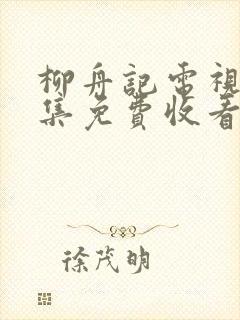 柳舟記電視
集免費收看
徐茂明